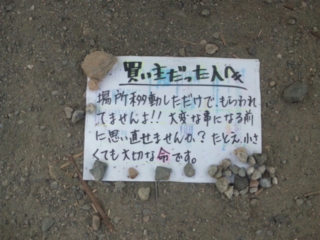 買い主だった人へ
場所移動しただけで、もらわれ
てませんよ!! 大変な事になる前
に思い直せませんか? たとえ小さ
くても大切な命です。